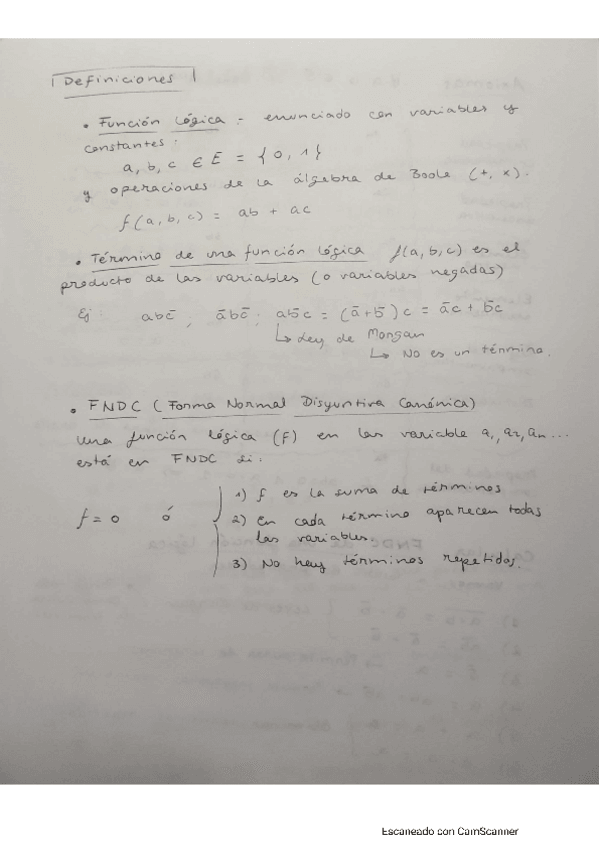 Definiciones
• Función lógica = enunciado con variables y
constantes:
a, b, c ∈ E = {0, 1}
y operaciones de la álgebra de Boole (+, x).
f(a, b, c) = ab + ac
• Término de una función lógica f(a, b, c) es el
producto de las variables (o variables negadas)
Ej: abc̄, ābc̄; a̅b̅c = (ā+b̄)c = āc + b̄c
↳ Ley de Morgan
↳ No es un término.
• FNDC (Forma Normal Disyuntiva Canónica)
Una función lógica (F) en las variable a₁, a₂, aₙ...
está en FNDC si:
1) f es la suma de términos
f = 0 ó 2) En cada término aparecen todas
las variables.
3) No hay términos repetidos.
Escaneado con CamScanner